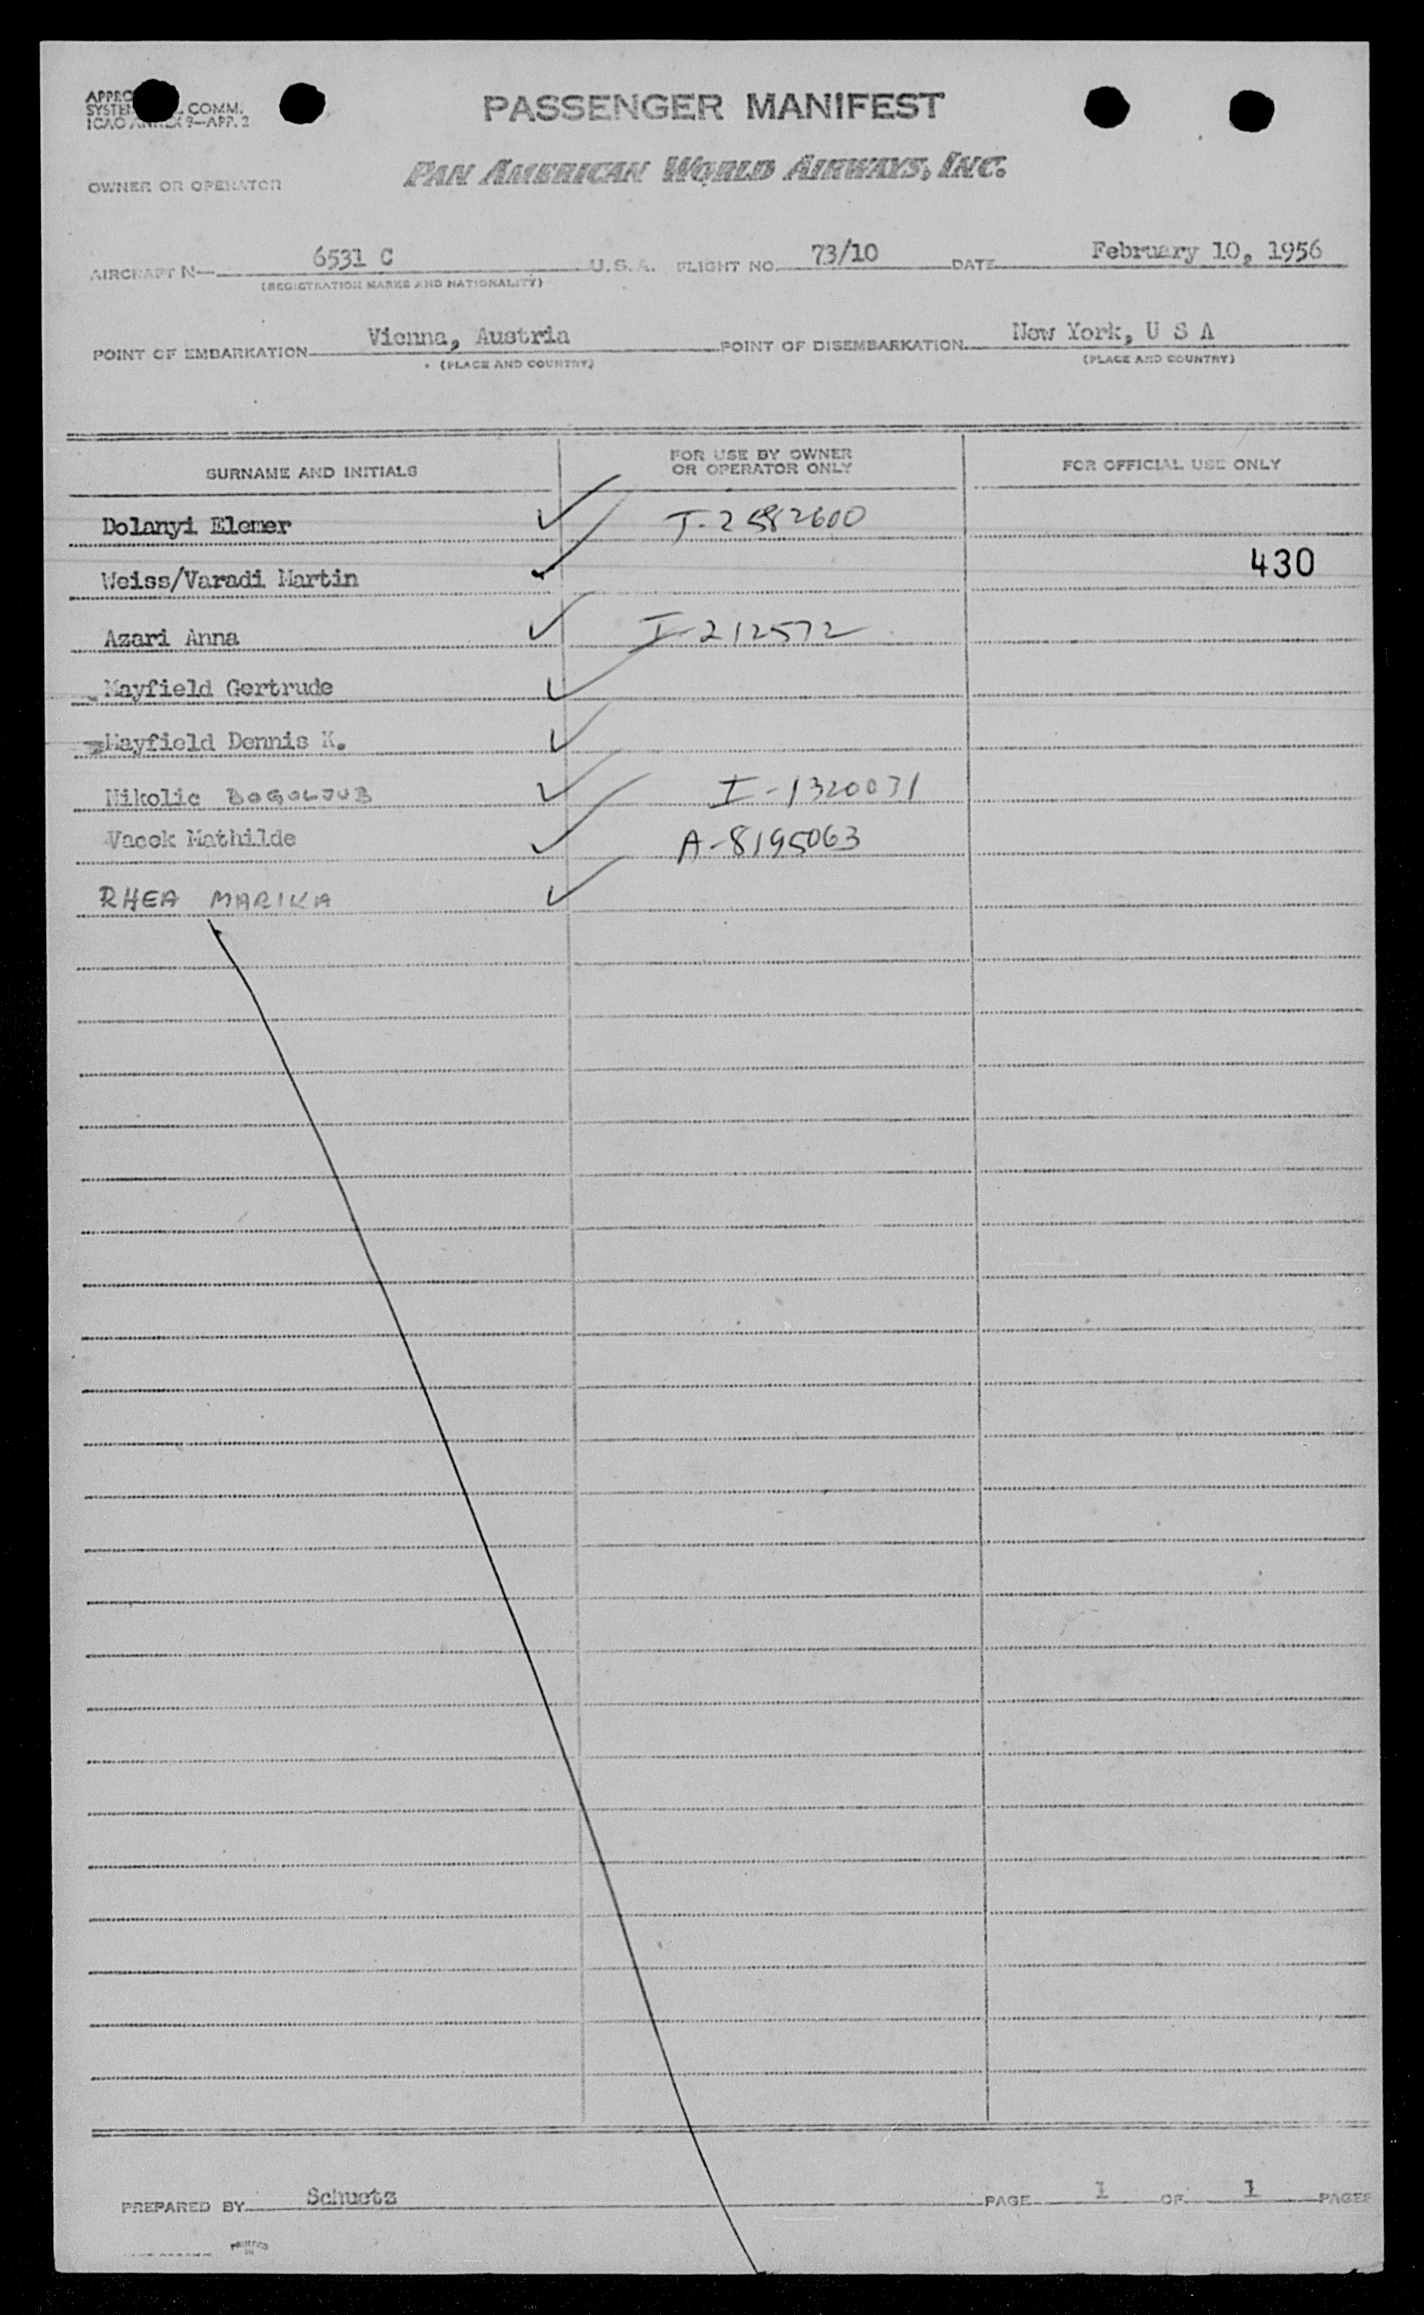 PASSENGER MANIFEST
COMM.
ICAO ANNEX 9—APP. 2
OWNER OR OPERATOR
PAN AMERICAN WORLD AIRWAYS, INC.
AIRCRAFT N— 6531 C U.S.A. FLIGHT NO. 73/10 DATE February 10, 1956
(REGISTRATION MARKS AND NATIONALITY)
POINT OF EMBARKATION Vienna, Austria POINT OF DISEMBARKATION New York, U S A
(PLACE AND COUNTRY) (PLACE AND COUNTRY)
SURNAME AND INITIALS FOR USE BY OWNER OR OPERATOR ONLY FOR OFFICIAL USE ONLY
Dolanyi Elemer ✓ I-2582600
Weiss/Varadi Martin ✓ 430
Azari Anna ✓ I-212572
Mayfield Gertrude ✓
Mayfield Dennis K. ✓
Nikolic BOGOLJUB ✓ I-1320071
Vacek Mathilde ✓ A-8195063
RHEA MARIKA ✓
PREPARED BY Schuetz PAGE 1 OF 1 PAGES
PRINTED IN